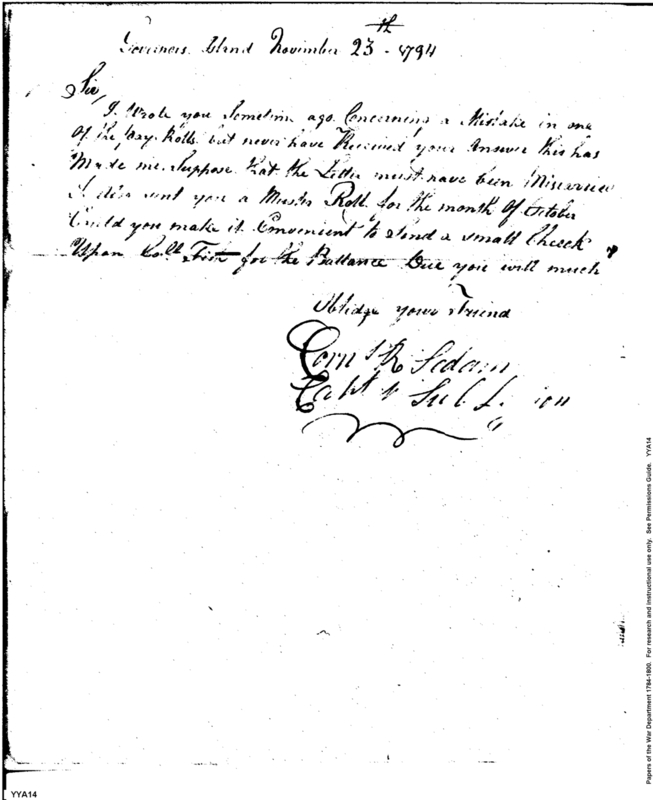 Governers Island November 23th 1794
Sir,
I Wrote you Sometime ago Concerning a Mistake in one
Of the Pay Rolls but never have Received your Answer this has
Made me Suppose that the Letter must have been Miscarried
I also sent you a Muster Roll for the month Of October
Could you make it Convenient to Send a small Check
Upon Coll. Fish for the Ballance Due you will much
Oblidge your Friend
Corns R Sedam
Capt 1 Sub Legion
YYA14
Papers of the War Department 1784-1800. For research and instructional use only. See Permissions Guide. YYA14